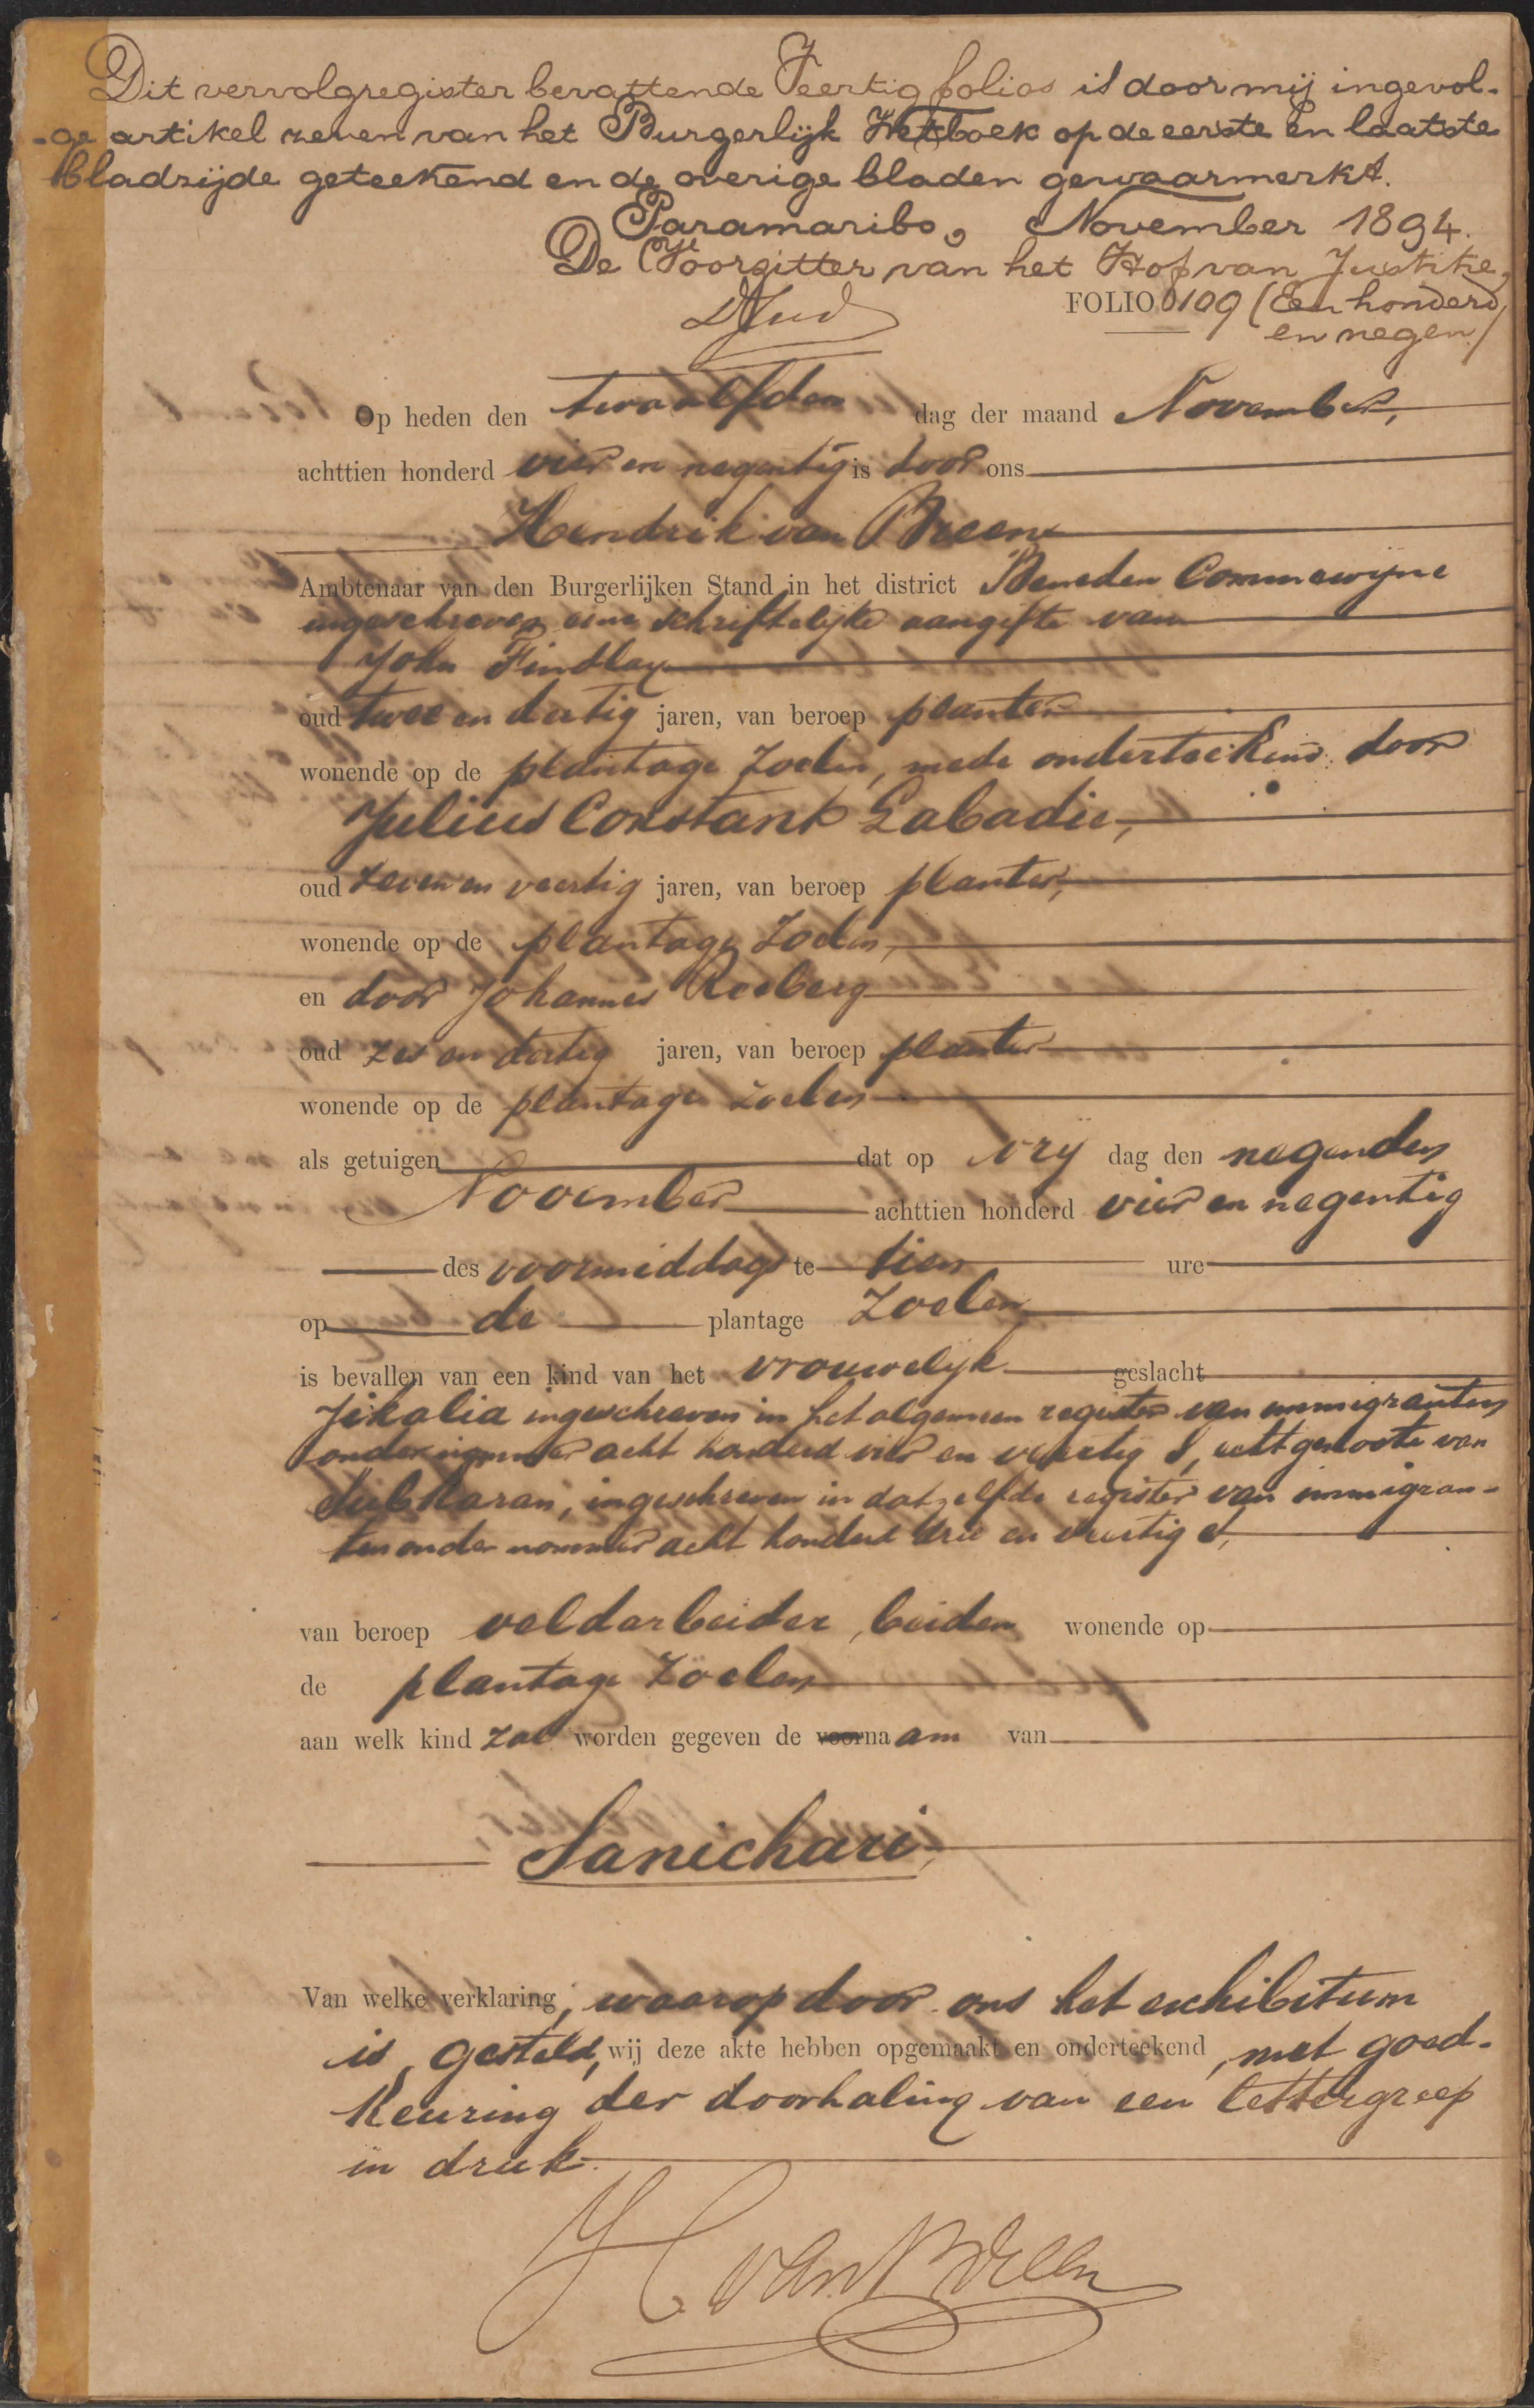 Dit vervolgregister bevattende Veertig folios is door mij ingevol-
-ge artikel zeven van het Burgerlijk Wetboek op de eerste en laatste
bladzijde geteekend en de overige bladen gewaarmerkt.
Paramaribo, November 1894.
De Voorzitter van het Hof van Justitie,
FOLIO 109 (Een honderd
en negen)
Op heden den twaalfden dag der maand November,
achttien honderd vier en negentig is door ons
Hendrik van Breen
Ambtenaar van den Burgerlijken Stand in het district Beneden Commewijne
ingeschreven eene schriftelijke aangifte van
John Findlay
oud twee en dertig jaren, van beroep planter
wonende op de plantage Zoelen, mede onderteekend door
Julius Constant Labadie,
oud zeven en veertig jaren, van beroep planter,
wonende op de plantage Zoelen,
en door Johannes Rosberg
oud zes en dertig jaren, van beroep planter
wonende op de plantage Zoelen
als getuigen dat op vrij dag den negenden
November achttien honderd vier en negentig
des voormiddags te tien ure
op de plantage Zoelen
is bevallen van een kind van het vrouwelijk geslacht
Jikalia ingeschreven in het algemeen register van immigranten
onder nommer acht honderd vier en veertig S, echtgenoote van
Subkaran, ingeschreven in datzelfde register van immigran-
ten onder nommer acht honderd drie en veertig S,
van beroep veldarbeider, beiden wonende op
de plantage Zoelen
aan welk kind zal worden gegeven de voornaam van
Sanichari,
Van welke verklaring, waarop door ons het exhibitum
is gesteld, wij deze akte hebben opgemaakt en onderteekend, met goed-
keuring der doorhaling van een lettergreep
in druk.
H van Breen